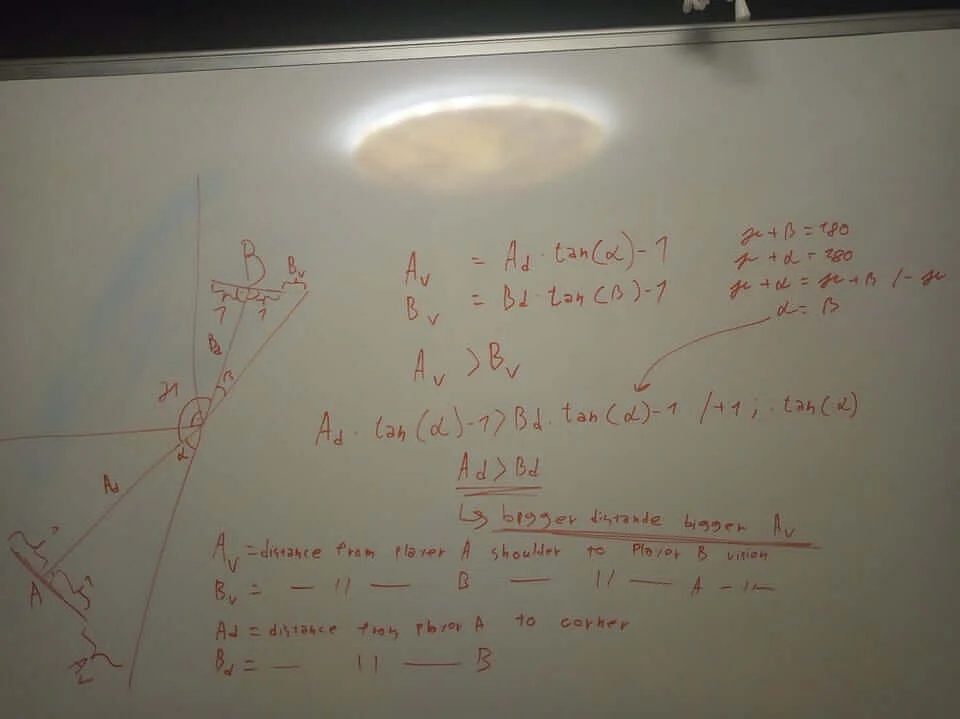 B
B_v
1 1
B_d
β
γ
α
A_d
1
1
A
A_v
A_v = A_d · tan(α) - 1
B_v = B_d · tan(β) - 1
A_v > B_v
γ + β = 180
γ + α = 180
γ + α = γ + β / - γ
α = β
A_d · tan(α) - 1 > B_d · tan(α) - 1 / +1 ; · tan(α)
A_d > B_d
↳ bigger distande bigger A_v
A_v = distance from player A shoulder to Player B vision
B_v = — 11 — B — 11 — A - 11 -
A_d = distance from player A to corner
B_d = — 11 — B